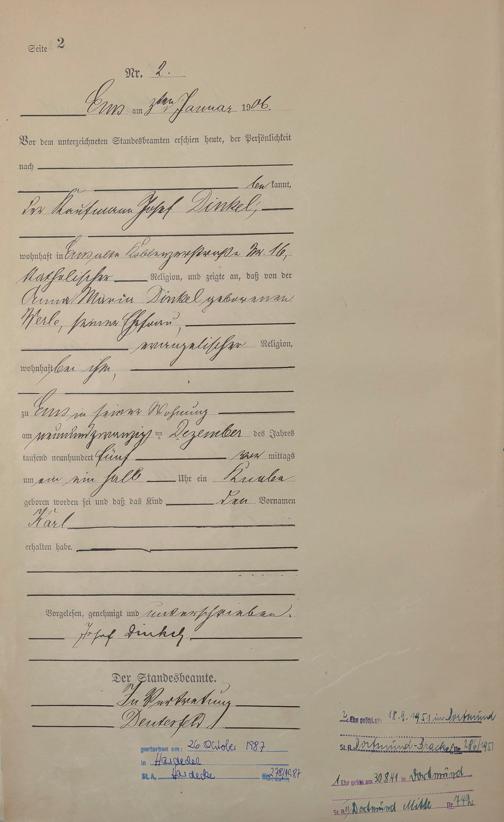 Seite 2
Nr. 2.
Ems am 3ten Januar 1906.
Vor dem unterzeichneten Standesbeamten erschien heute, der Persönlichkeit
nach
bekannt,
der Kaufmann Josef Dinkel,
wohnhaft in Ems alte Koblenzerstraße Nr 16,
katholischer Religion, und zeigte an, daß von der
Anna Maria Dinkel geborenen
Werle, seiner Ehefrau,
evangelischer Religion,
wohnhaft bei ihm,
zu Ems in seiner Wohnung
am neunundzwanzigsten Dezember des Jahres
tausend neunhundert fünf vor mittags
um ein ein halb Uhr ein Knabe
geboren worden sei und daß das Kind den Vornamen
Karl
erhalten habe.
Vorgelesen, genehmigt und unterschrieben.
Josef Dinkel
Der Standesbeamte.
In Vertretung
gestorben am: 26 Oktober 1987
in Herdecke
St. A. Herdecke Nr. 278/1987
2. Ehe geschl. am 18.9.1951 in Dortmund
St. A. Dortmund-Brackel Nr. 286/1951
1. Ehe geschl. am 30.8.41 in Dortmund
St. A. Dortmund Mitte Nr. 749